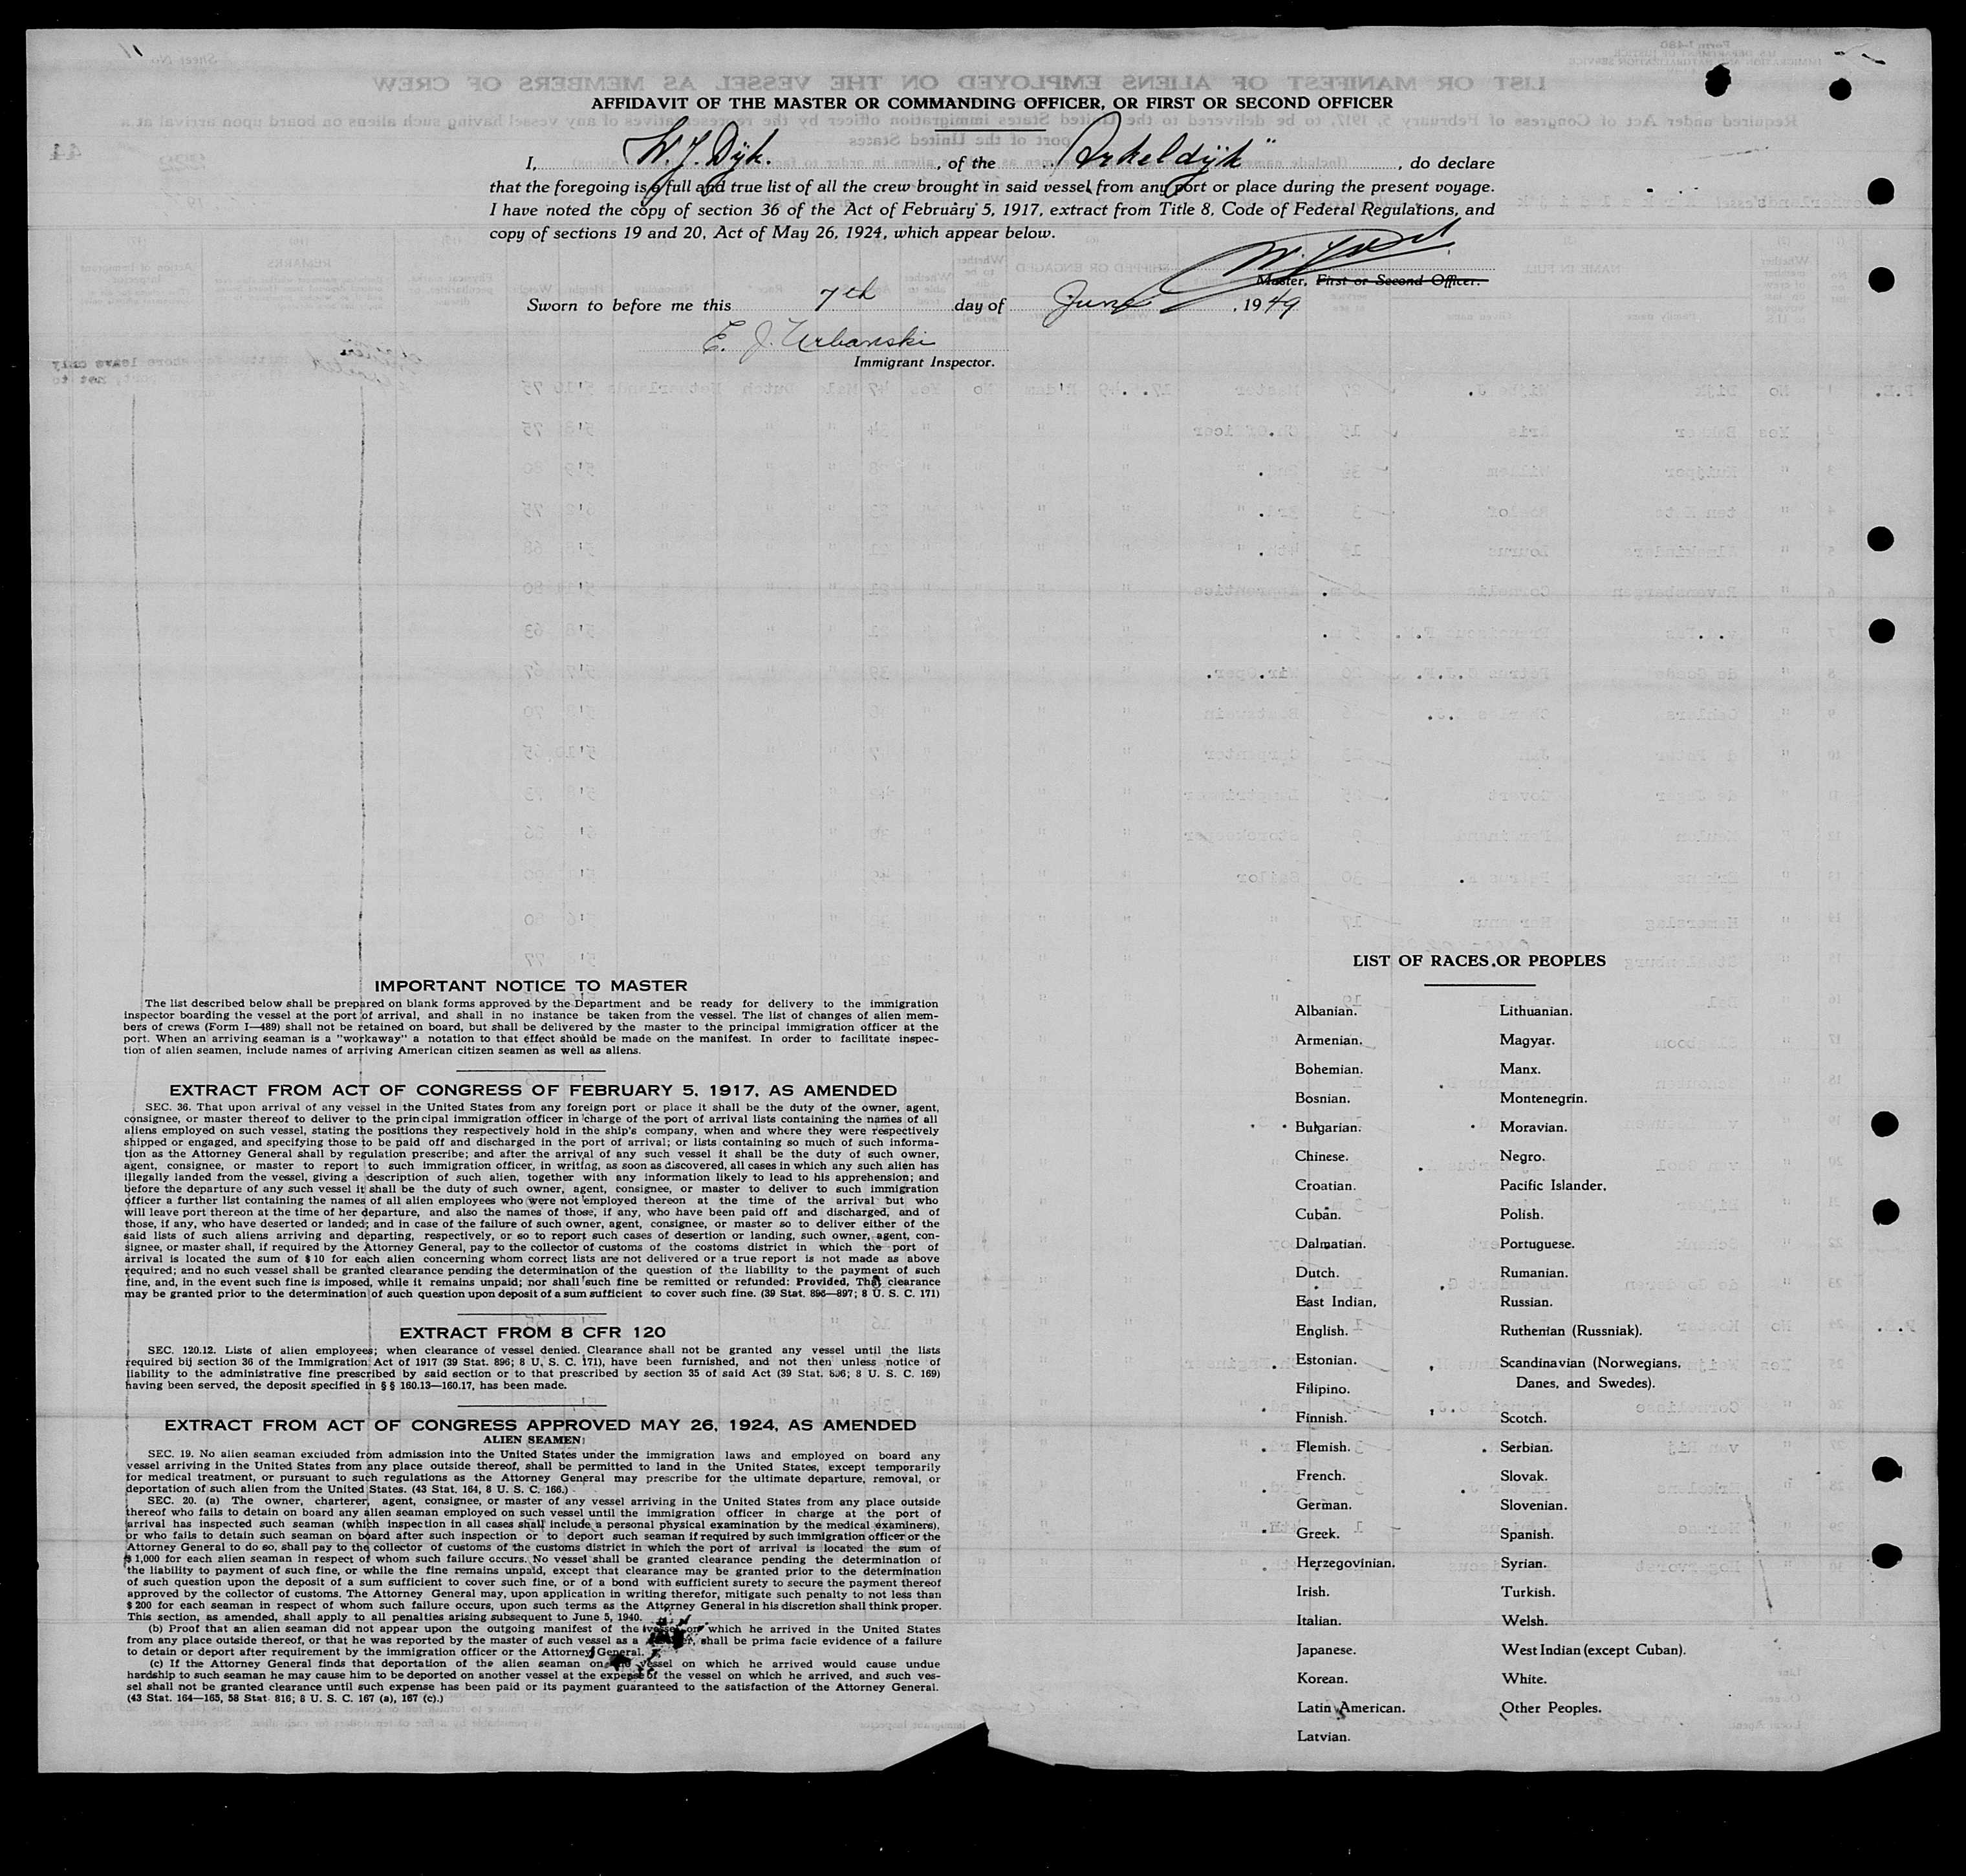 AFFIDAVIT OF THE MASTER OR COMMANDING OFFICER, OR FIRST OR SECOND OFFICER
I, W. J. Dijk. , of the "Arkeldijk" , do declare
that the foregoing is a full and true list of all the crew brought in said vessel from any port or place during the present voyage.
I have noted the copy of section 36 of the Act of February 5, 1917, extract from Title 8, Code of Federal Regulations, and
copy of sections 19 and 20, Act of May 26, 1924, which appear below.
Master, First or Second Officer.
Sworn to before me this 7th day of June , 1949
E. J. Urbanski
Immigrant Inspector.
IMPORTANT NOTICE TO MASTER
The list described below shall be prepared on blank forms approved by the Department and be ready for delivery to the immigration
inspector boarding the vessel at the port of arrival, and shall in no instance be taken from the vessel. The list of changes of alien mem-
bers of crews (Form I—489) shall not be retained on board, but shall be delivered by the master to the principal immigration officer at the
port. When an arriving seaman is a "workaway" a notation to that effect should be made on the manifest. In order to facilitate inspec-
tion of alien seamen, include names of arriving American citizen seamen as well as aliens.
EXTRACT FROM ACT OF CONGRESS OF FEBRUARY 5, 1917, AS AMENDED
SEC. 36. That upon arrival of any vessel in the United States from any foreign port or place it shall be the duty of the owner, agent,
consignee, or master thereof to deliver to the principal immigration officer in charge of the port of arrival lists containing the names of all
aliens employed on such vessel, stating the positions they respectively hold in the ship's company, when and where they were respectively
shipped or engaged, and specifying those to be paid off and discharged in the port of arrival; or lists containing so much of such informa-
tion as the Attorney General shall by regulation prescribe; and after the arrival of any such vessel it shall be the duty of such owner,
agent, consignee, or master to report to such immigration officer, in writing, as soon as discovered, all cases in which any such alien has
illegally landed from the vessel, giving a description of such alien, together with any information likely to lead to his apprehension; and
before the departure of any such vessel it shall be the duty of such owner, agent, consignee, or master to deliver to such immigration
officer a further list containing the names of all alien employees who were not employed thereon at the time of the arrival but who
will leave port thereon at the time of her departure, and also the names of those, if any, who have been paid off and discharged, and of
those, if any, who have deserted or landed; and in case of the failure of such owner, agent, consignee, or master so to deliver either of the
said lists of such aliens arriving and departing, respectively, or so to report such cases of desertion or landing, such owner, agent, con-
signee, or master shall, if required by the Attorney General, pay to the collector of customs of the costoms district in which the port of
arrival is located the sum of $10 for each alien concerning whom correct lists are not delivered or a true report is not made as above
required; and no such vessel shall be granted clearance pending the determination of the question of the liability to the payment of such
fine, and, in the event such fine is imposed, while it remains unpaid; nor shall such fine be remitted or refunded: Provided, That clearance
may be granted prior to the determination of such question upon deposit of a sum sufficient to cover such fine. (39 Stat. 896—897; 8 U. S. C. 171)
EXTRACT FROM 8 CFR 120
SEC. 120.12. Lists of alien employees; when clearance of vessel denied. Clearance shall not be granted any vessel until the lists
required bij section 36 of the Immigration Act of 1917 (39 Stat. 896; 8 U. S. C. 171), have been furnished, and not then unless notice of
liability to the administrative fine prescribed by said section or to that prescribed by section 35 of said Act (39 Stat. 896; 8 U. S. C. 169)
having been served, the deposit specified in § § 160.13—160.17, has been made.
EXTRACT FROM ACT OF CONGRESS APPROVED MAY 26, 1924, AS AMENDED
ALIEN SEAMEN
SEC. 19. No alien seaman excluded from admission into the United States under the immigration laws and employed on board any
vessel arriving in the United States from any place outside thereof, shall be permitted to land in the United States, except temporarily
for medical treatment, or pursuant to such regulations as the Attorney General may prescribe for the ultimate departure, removal, or
deportation of such alien from the United States. (43 Stat. 164, 8 U. S. C. 166.)
SEC. 20. (a) The owner, charterer, agent, consignee, or master of any vessel arriving in the United States from any place outside
thereof who fails to detain on board any alien seaman employed on such vessel until the immigration officer in charge at the port of
arrival has inspected such seaman (which inspection in all cases shall include a personal physical examination by the medical examiners),
or who fails to detain such seaman on board after such inspection or to deport such seaman if required by such immigration officer or the
Attorney General to do so, shall pay to the collector of customs of the customs district in which the port of arrival is located the sum of
$ 1,000 for each alien seaman in respect of whom such failure occurs. No vessel shall be granted clearance pending the determination of
the liability to payment of such fine, or while the fine remains unpaid, except that clearance may be granted prior to the determination
of such question upon the deposit of a sum sufficient to cover such fine, or of a bond with sufficient surety to secure the payment thereof
approved by the collector of customs. The Attorney General may, upon application in writing therefor, mitigate such penalty to not less than
$ 200 for each seaman in respect of whom such failure occurs, upon such terms as the Attorney General in his discretion shall think proper.
This section, as amended, shall apply to all penalties arising subsequent to June 5, 1940.
(b) Proof that an alien seaman did not appear upon the outgoing manifest of the vessel on which he arrived in the United States
from any place outside thereof, or that he was reported by the master of such vessel as a shall be prima facie evidence of a failure
to detain or deport after requirement by the immigration officer or the Attorney General.
(c) If the Attorney General finds that deportation of the alien seaman on the vessel on which he arrived would cause undue
hardship to such seaman he may cause him to be deported on another vessel at the expense of the vessel on which he arrived, and such ves-
sel shall not be granted clearance until such expense has been paid or its payment guaranteed to the satisfaction of the Attorney General.
(43 Stat. 164—165, 58 Stat. 816; 8 U. S. C. 167 (a), 167 (c).)
LIST OF RACES OR PEOPLES
Albanian.
Armenian.
Bohemian.
Bosnian.
Bulgarian.
Chinese.
Croatian.
Cuban.
Dalmatian.
Dutch.
East Indian,
English.
Estonian.
Filipino.
Finnish.
Flemish.
French.
German.
Greek.
Herzegovinian.
Irish.
Italian.
Japanese.
Korean.
Latin American.
Latvian.
Lithuanian.
Magyar.
Manx.
Montenegrin.
Moravian.
Negro.
Pacific Islander.
Polish.
Portuguese.
Rumanian.
Russian.
Ruthenian (Russniak).
Scandinavian (Norwegians,
Danes, and Swedes).
Scotch.
Serbian.
Slovak.
Slovenian.
Spanish.
Syrian.
Turkish.
Welsh.
West Indian (except Cuban).
White.
Other Peoples.